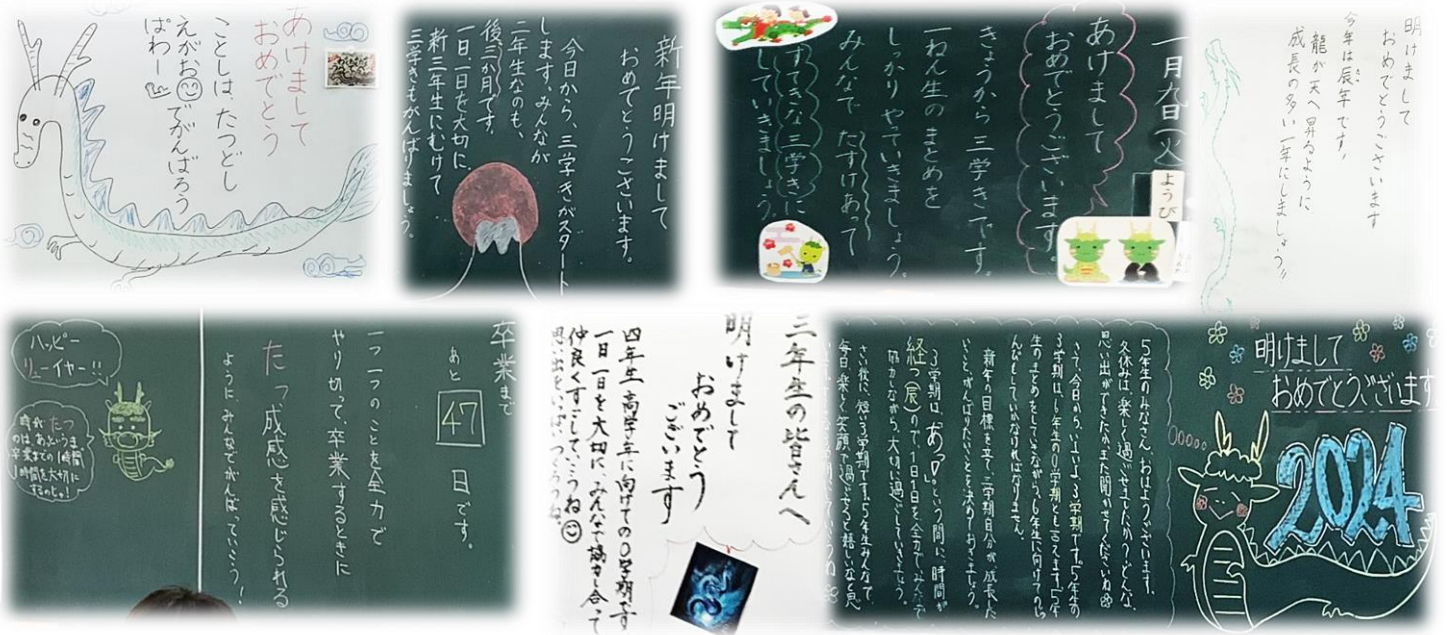 あけまして
おめでとう
ことしは、たつどし
えがおでがんばろう
ぱわー
新年明けまして
おめでとうございます。
今日から、三学きがスタート
します。みんなが
二年生なのも、
後三か月です。
一日、一日を大切に、
新三年生にむけて
三学きもがんばりましょう。
一月九日(火
ようび
あけまして
おめでとうございます。
きょうから三学きです。
一ねん生のまとめを
しっかりやっていきましょう。
みんなでたすけあって
すてきな三学きに
していきましょう。
明けまして
おめでとうございます
今年は辰年です。
龍が天へ昇るように
成長の多い一年にしましょう!!
卒業まで
あと47日です。
一つ一つのことを全力で
やり切って、卒業するときに
たつ成感を感じられる
ように、みんなでがんばっていこう!
ハッピー
リューイヤー!!
時がたつ
のは、あっというま
卒業までの1時間
1時間を大切に
するのじゃ!
三年生の皆さんへ
明けまして
おめでとう
ございます
四年生、高学年に向けての0学期です
一日一日を大切に、みんなで協力し合って
仲良くすごしていこうね
思い出をいっぱいつくろうね。
明けまして
おめでとうございます
2024
5年生のみなさん、おはようございます。
冬休みは楽しく過ごせましたか?どんな
思い出ができたか、また聞かせてくださいね
さて、今日から、いよいよ3学期です。5年生の
3学期は、6年生の0学期とも言えます。5年
生のまとめをしていきながら、6年生に向けての
んびもしていかなければなりません。
新年の目標を立て、三学期自分が成長した
いこと、がんばりたいことを決めておきましょう。
3学期は、あっという間に時間が
経つ(辰)ので、1日1日を全力でみんなで
協力しながら、大切に過ごしていきましょう。
さい後に、短い3学期ですが、5年生みんなで
毎日楽しく笑顔で過ごせるといいなと思